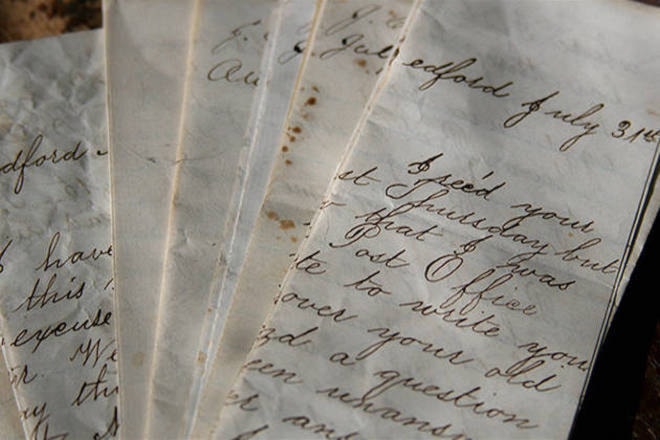 dford
I have
this
excuse
We
J.
Au
J. Jul
edford July 31st
I rec'd your
st Thursday but
that I was
Post Office
te to write you
over your old
a question
een unans